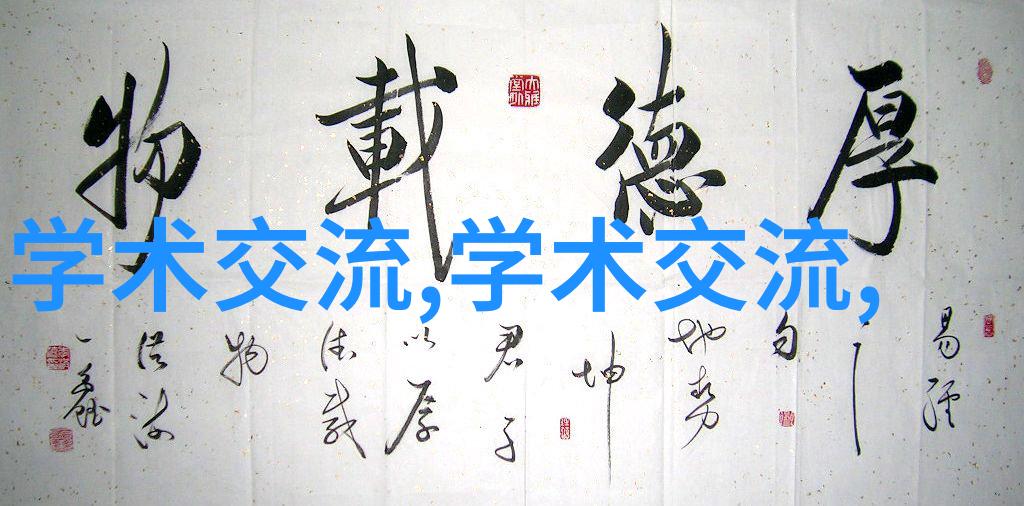 厚德載物
学术交流,学术交流,
易經
之
句
地勢
坤
君子
以厚
德載
物